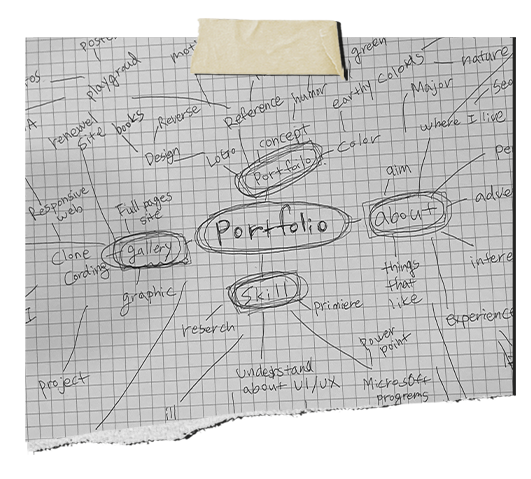 poste
moti
green
nature
playgroud
earthy colors
Major
Seo
ros
A
renewel
site
books
Reverse
Reference
humor
where I live
Design
Logo
concept
Portfolio
Color
per
aim
Responsive
web
Full pages
site
about
adve
Clone
Cording
gallery
Portfolio
things
that
like
intere
graphic
Skill
Primiere
Experience
reserch
power
point
project
understand
about UI/UX
Microsoft
progrems
ill